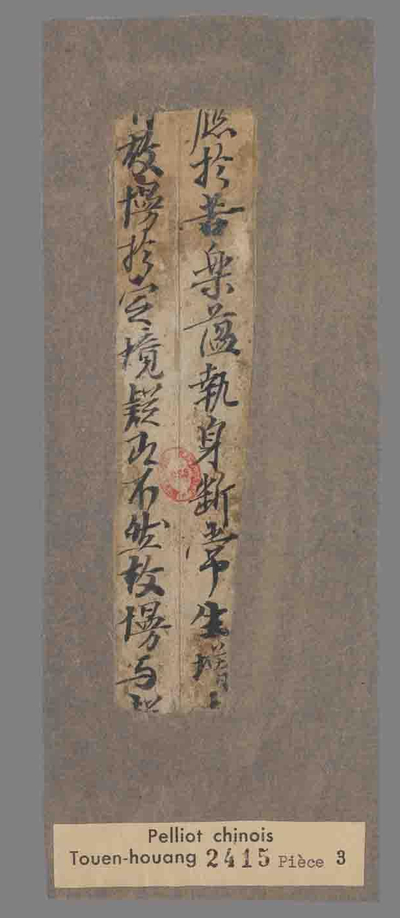 於苦樂蘊執身斷常生增
故慢於定境疑不然故慢与
Pelliot chinois
Touen-houang 2415 Pièce 3